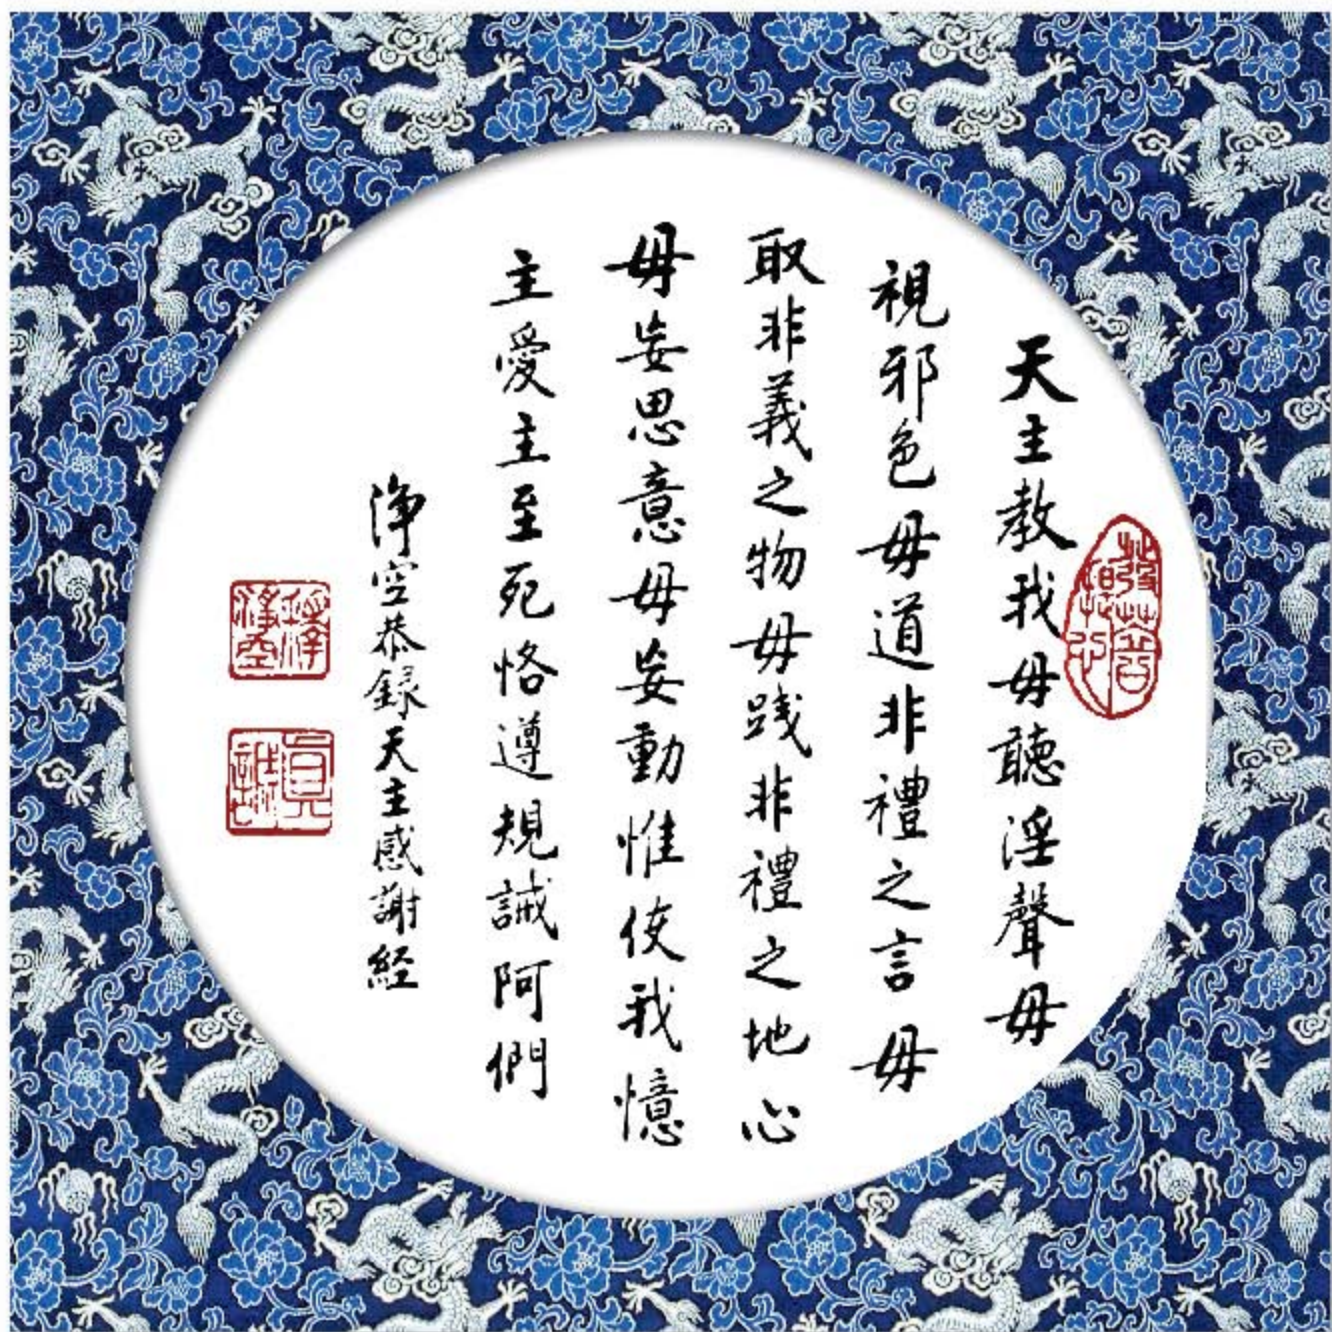 天主教我毋聽淫聲毋
視邪色毋道非禮之言毋
取非義之物毋踐非禮之地心
毋妄思意毋妄動惟使我憶
主愛主至死恪遵規誡阿們
淨空恭錄天主感謝経
釋淨空